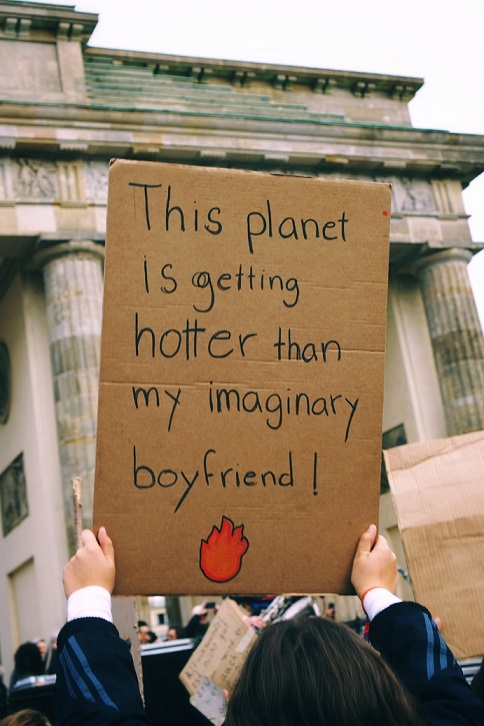 This planet
is getting
hotter than
my imaginary
boyfriend!